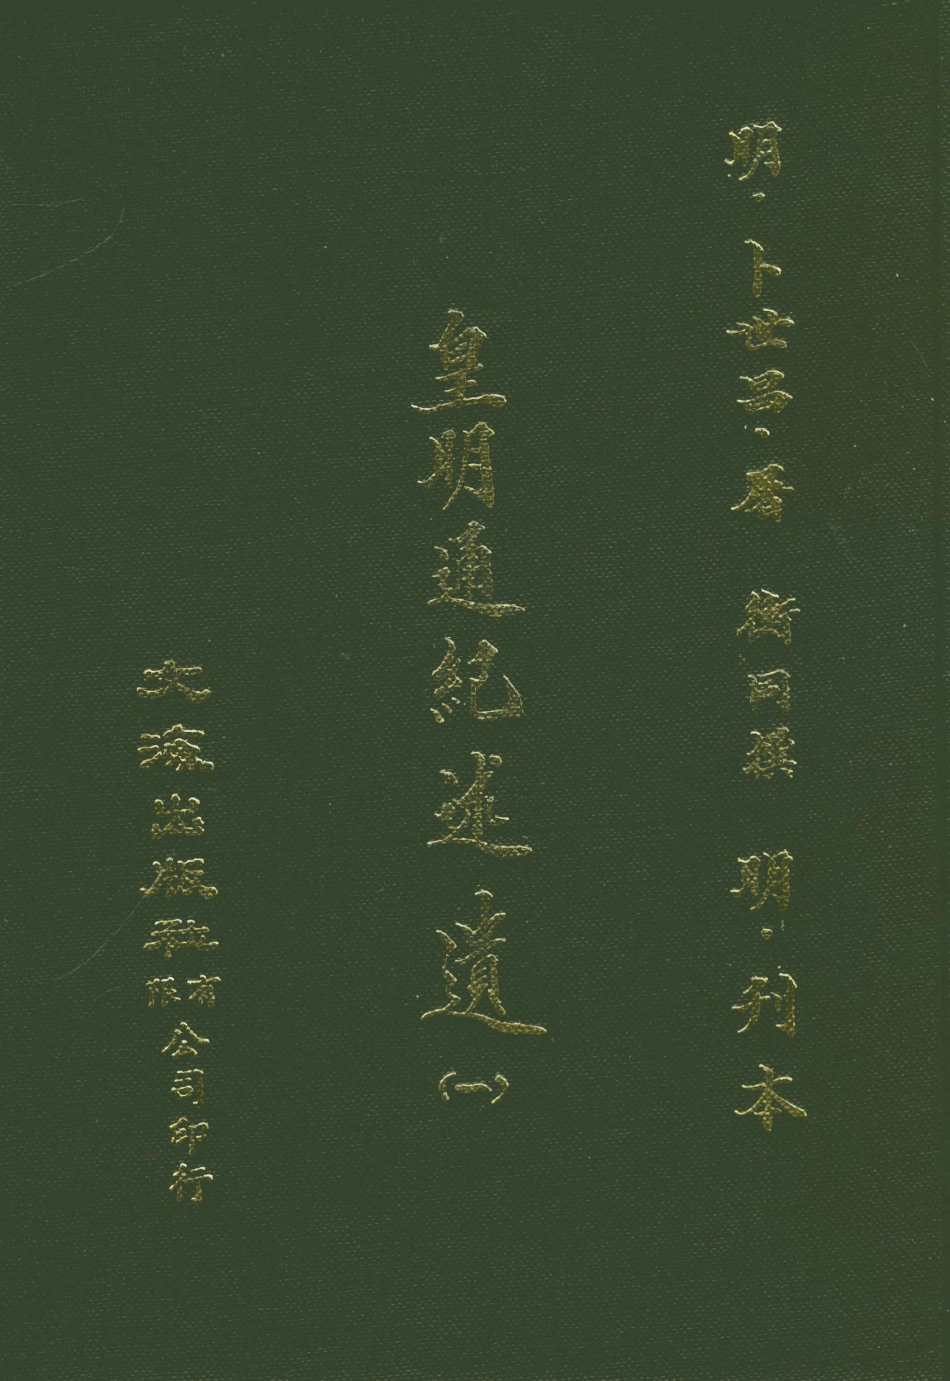 明・卜世昌・屠　衡同撰　明・刊本
皇明通紀述遺(一)
文海出版社有限公司印行